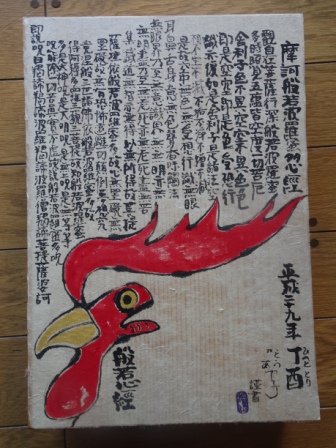 摩訶般若波羅蜜多心經
觀自在菩薩行深般若波羅蜜
多時照見五蘊皆空度一切苦厄
舎利子色不異空空不異色色
即是空空即是色受想行
識亦復如是舎利子是諸法空
相不生不滅不垢不浄不増不減
是故空中無色無受想行識無眼
耳鼻舌身意無色声香味触法
無眼界乃至無意識界無無明亦無
無明尽乃至無老死亦無老死尽
無苦集滅道無智亦無得以無所得故菩提
薩埵依般若波羅蜜多故心無罣礙無
罣礙故無有恐怖遠離一切顛倒夢想究
竟涅槃三世諸仏依般若波羅蜜多故
得阿耨多羅三藐三菩提故知般若波羅蜜
多是大神呪是大明呪是無上呪是無等等
呪能除一切苦真実不虚故説般若波羅蜜多呪
即説呪曰羯諦羯諦波羅羯諦波羅僧羯諦菩提薩婆訶
般若心經
平成二十九年 丁酉
ひのととり